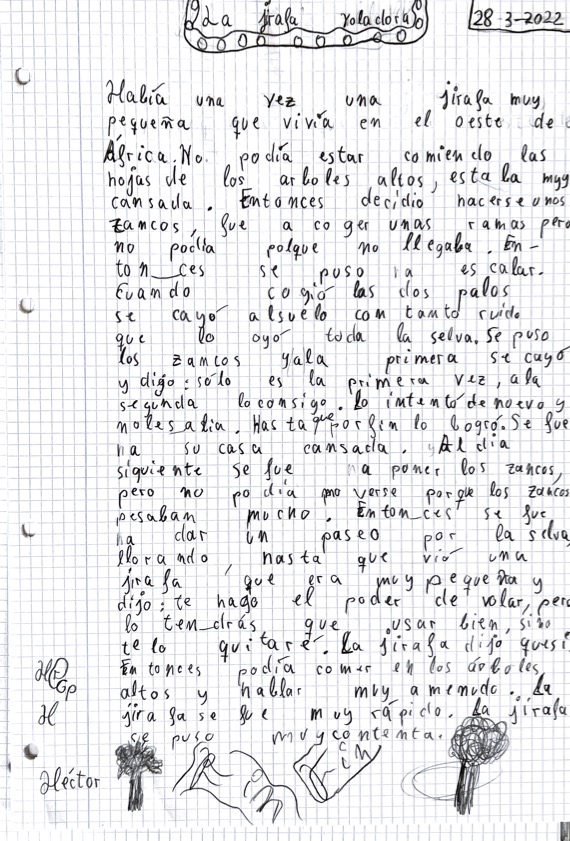 La jirafa voladora
28-3-2022
Había una vez una jirafa muy
pequeña que vivía en el oeste de
África. No podía estar comiendo las
hojas de los arboles altos, estaba muy
cansada. Entonces decidio hacerse unos
zancos, fue a coger unas ramas pero
no podía polque no llegaba. En-
ton_ces se puso ha escalar.
Cuando cogió las dos palos
se cayó alsuelo con tanto ruido
que lo oyó toda la selva. Se puso
los zancos yala primera se cayó
y digo: sólo es la primera vez, ala
segunda loconsigo. Lo intentó de nuevo y
nolesalia. Hasta que porfin lo logró. Se fue
ha su casa cansada. Al día
siguiente se fue ha poner los zancos,
pero no podía moverse porque los zancos
pesaban mucho. Enton_ces se fue
ha dar un paseo por la selva
llorando, hasta que vió una
jirafa que era muy pequeña y
dijo: te hago el poder de volar, pero
lo ten_drás que usar bien, sino
te lo quitaré. La jirafa dijo quesi.
Entonces podía comer en los árboles
altos y hablar muy amenudo. La
jirafa se fue muy rápido. La jirafa
se puso muy contenta.
H
Héctor
Fin